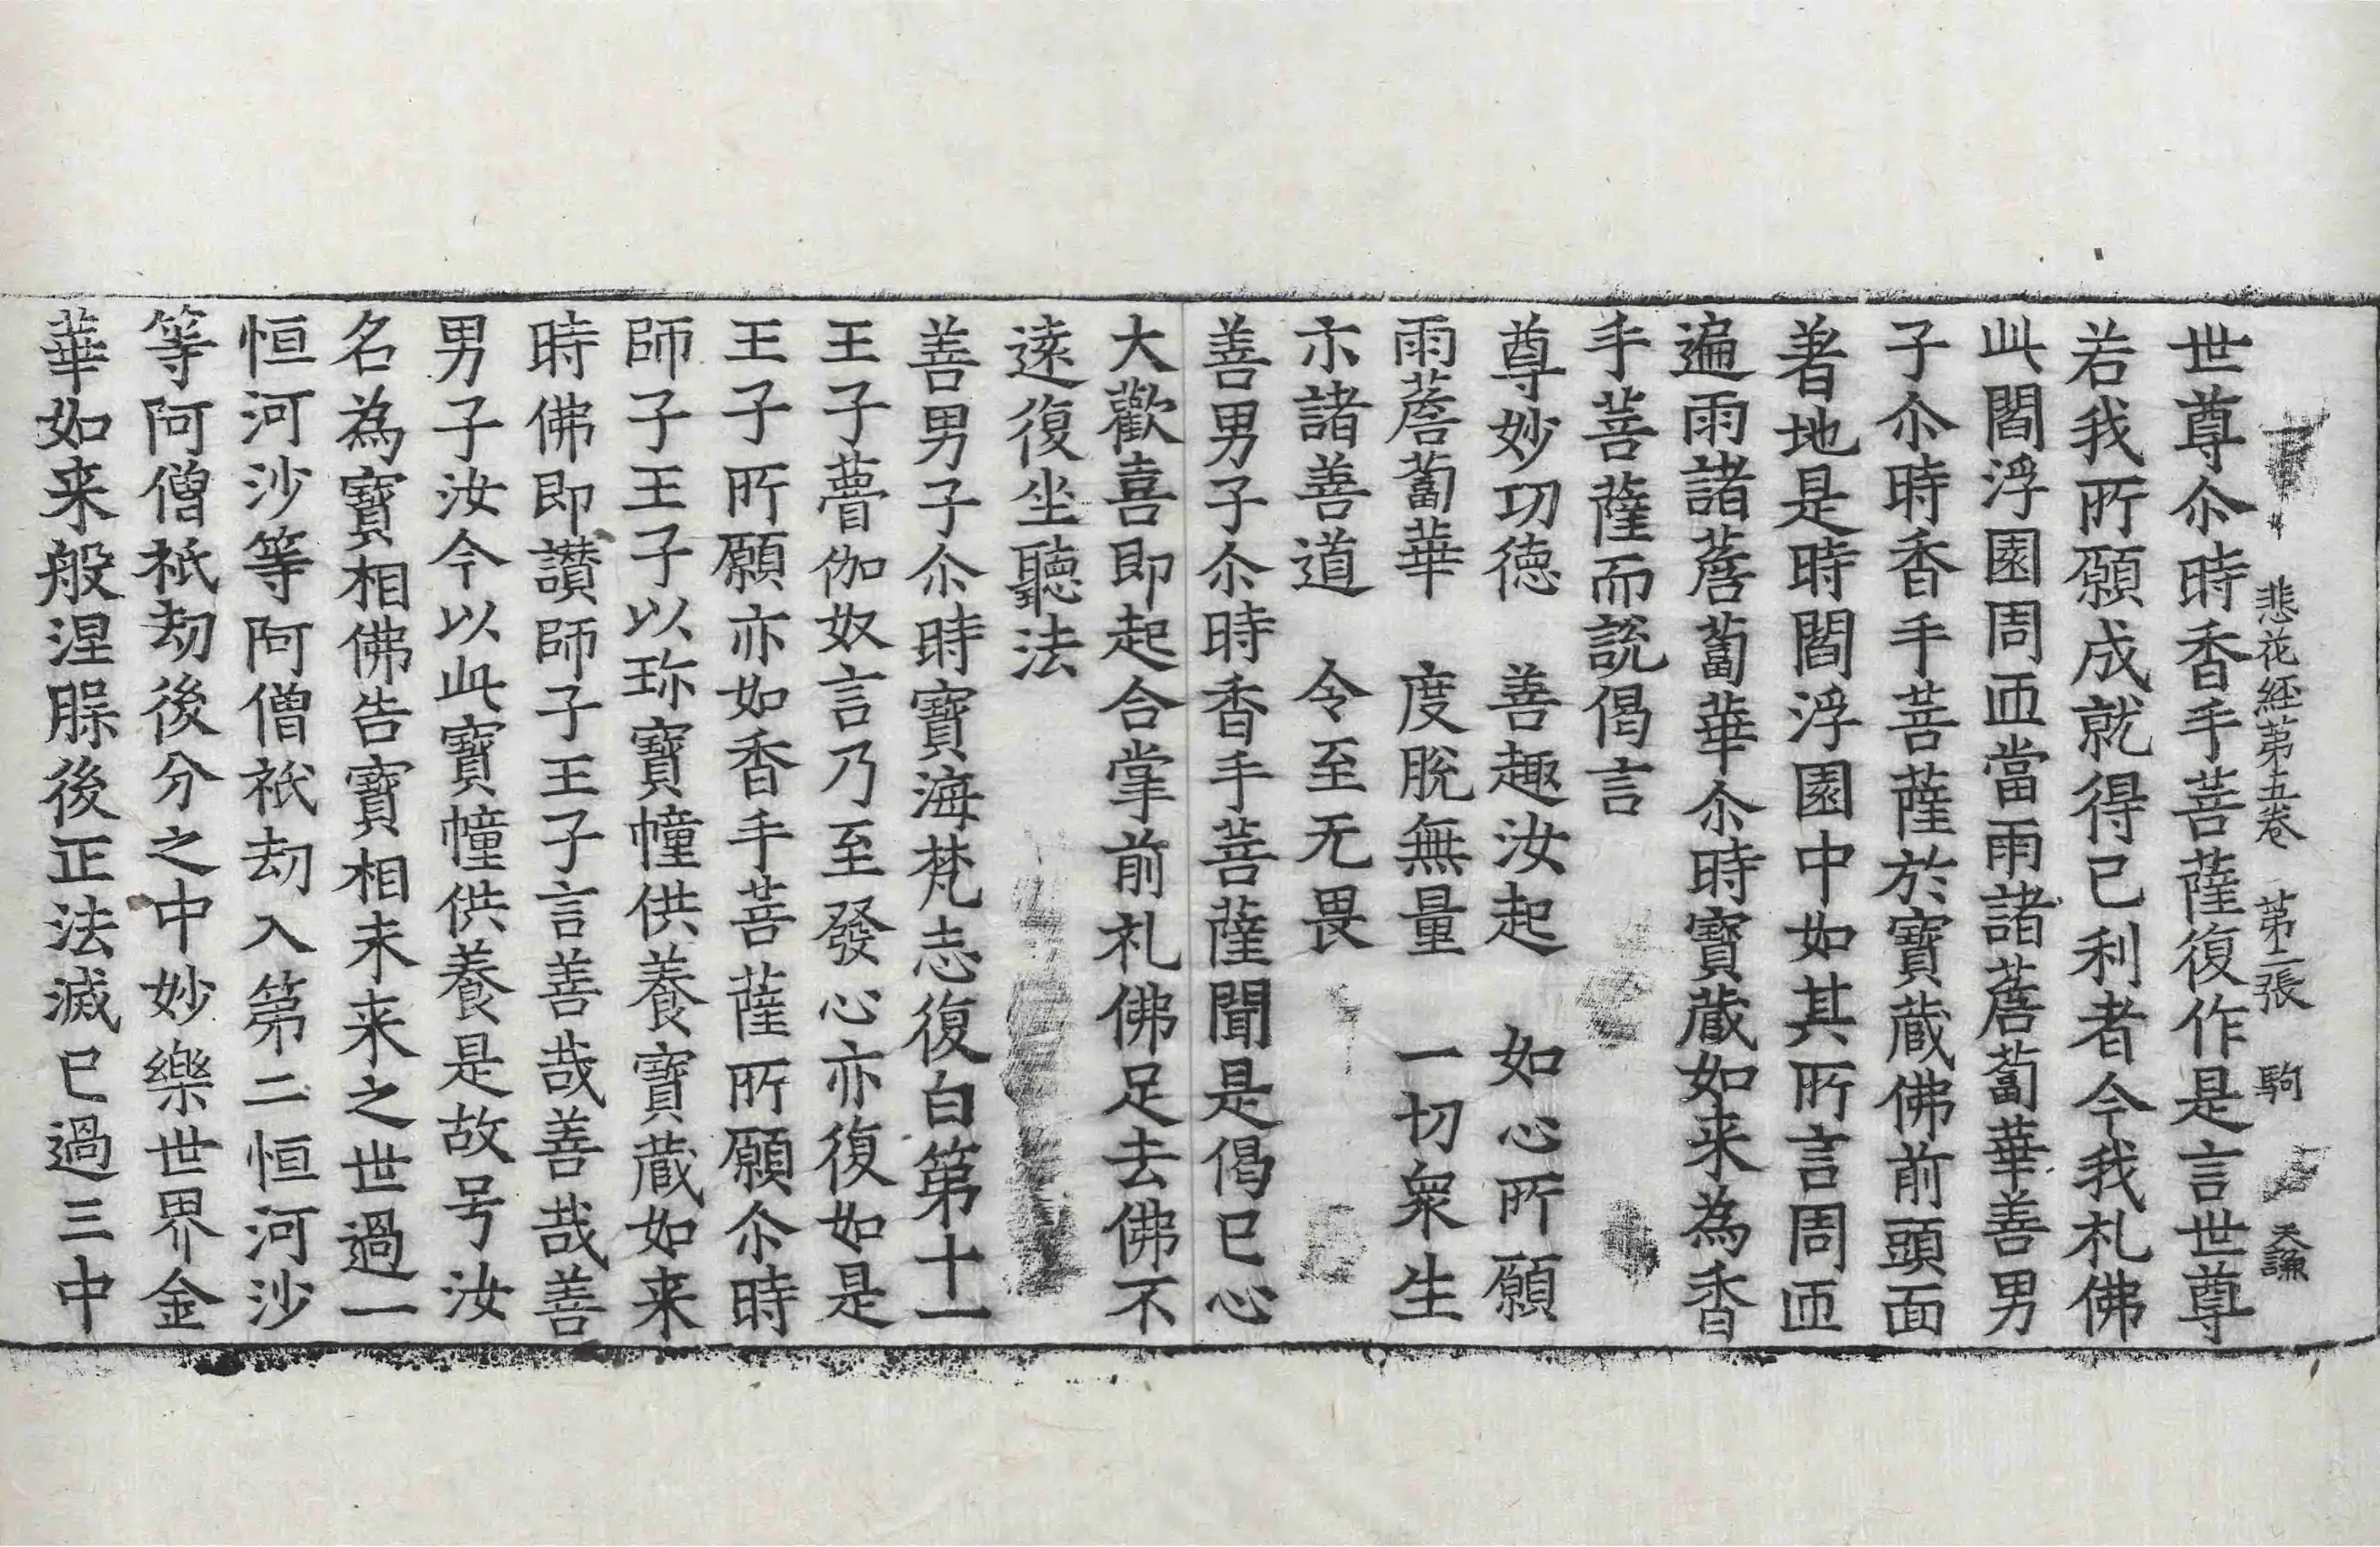 悲花經第五卷　第二張　駒　天謙
世尊尒時香手菩薩復作是言世尊
若我所願成就得已利者今我礼佛
此閻浮園周迊當雨諸薝蔔華善男
子尒時香手菩薩於寶藏佛前頭面
著地是時閻浮園中如其所言周迊
遍雨諸薝蔔華尒時寶藏如来為香
手菩薩而說偈言
尊妙功德　善趣汝起　如心所願
雨薝蔔華　度脫無量　一切衆生
示諸善道　令至无畏
善男子尒時香手菩薩聞是偈已心
大歡喜即起合掌前礼佛足去佛不
遠復坐聽法
善男子尒時寶海梵志復白第十一
王子瞢伽奴言乃至發心亦復如是
王子所願亦如香手菩薩所願尒時
師子王子以珎寶幢供養寶藏如来
時佛即讃師子王子言善哉善哉善
男子汝今以此寶幢供養是故号汝
名為寶相佛告寶相未来之世過一
恒河沙等阿僧祇劫入第二恒河沙
等阿僧祇劫後分之中妙樂世界金
華如来般涅脲後正法滅已過三中